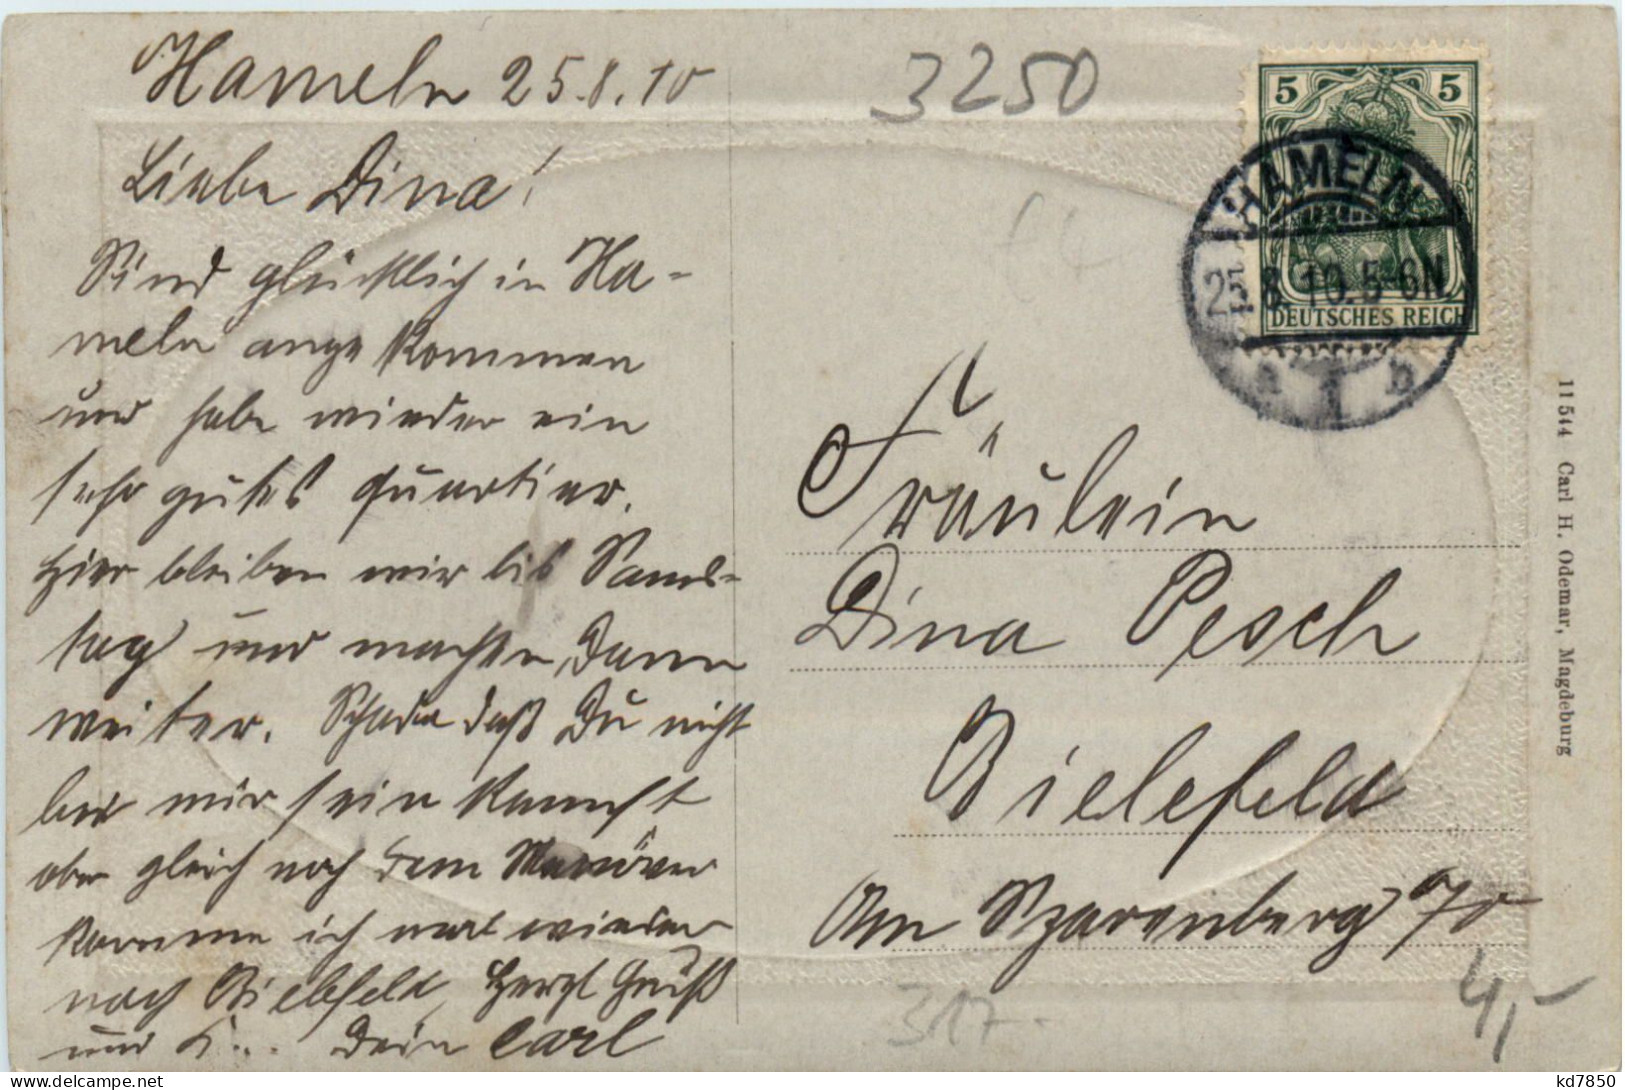 Hameln 25.8.10
Liebe Dina!
Sind glücklich in Ha-
meln angekommen
und habe wieder ein
sehr gutes Quartier.
Hier bleiben wir bis Sams-
tag und machen dann
weiter. Schade daß Du nicht
bei mir sein kannst
aber gleich nach dem Manöver
komme ich mal wieder
nach Bielefeld. Herzl Gruß
und K... Dein Carl
3250
5 5
HAMELN
25.8.10.5-6N.
DEUTSCHES REICH
* 1 b
Fräulein
Dina Pesch
Bielefeld
Am Sparenberg 70
317.-
4,-
11544 Carl H. Odemar, Magdeburg
kd7850